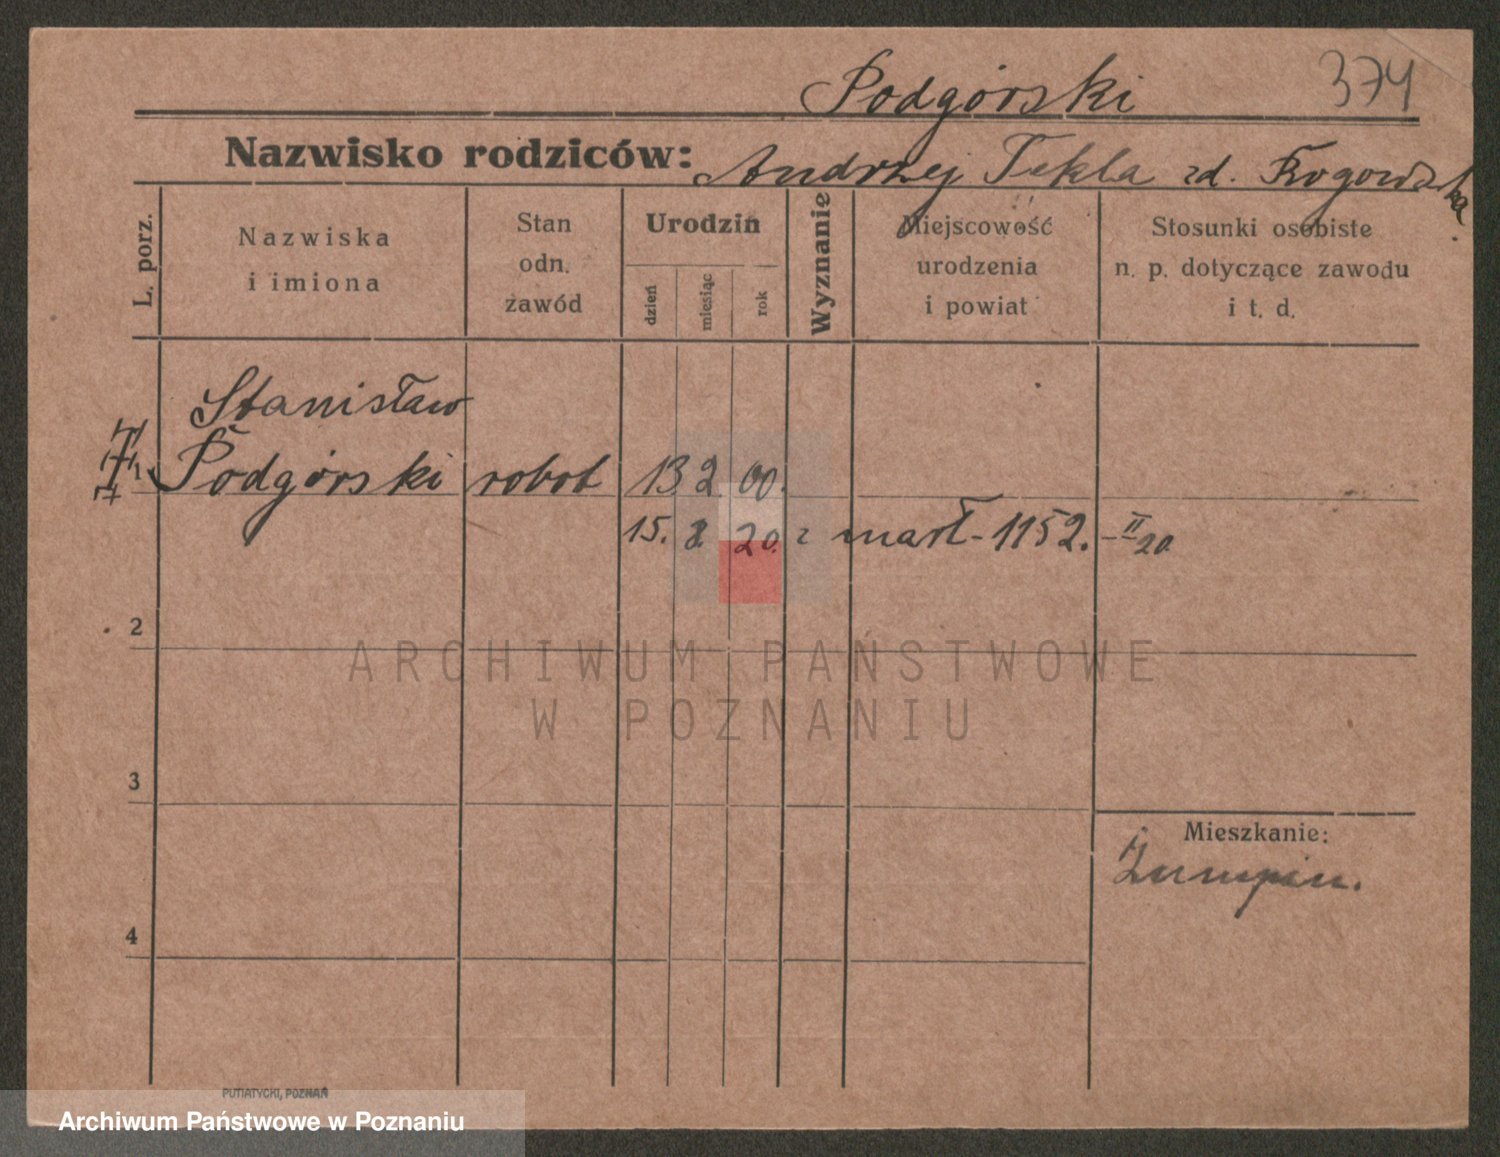 Podgórski 374
Nazwisko rodziców: Andrzej Tekla zd. Rogowska
L. porz.
Nazwiska
i imiona
Stan
odn.
zawód
Urodzin
dzień
miesiąc
rok
Wyznanie
Miejscowość
urodzenia
i powiat
Stosunki osobiste
n. p. dotyczące zawodu
i t. d.
Stanisław
1 Podgórski robot 13 2 00.
15. 8. 20. zmarł - 1152. - II 20.
2
ARCHIWUM PAŃSTWOWE
W POZNANIU
3
Mieszkanie:
4
PUTIATYCKI, POZNAŃ
Archiwum Państwowe w Poznaniu